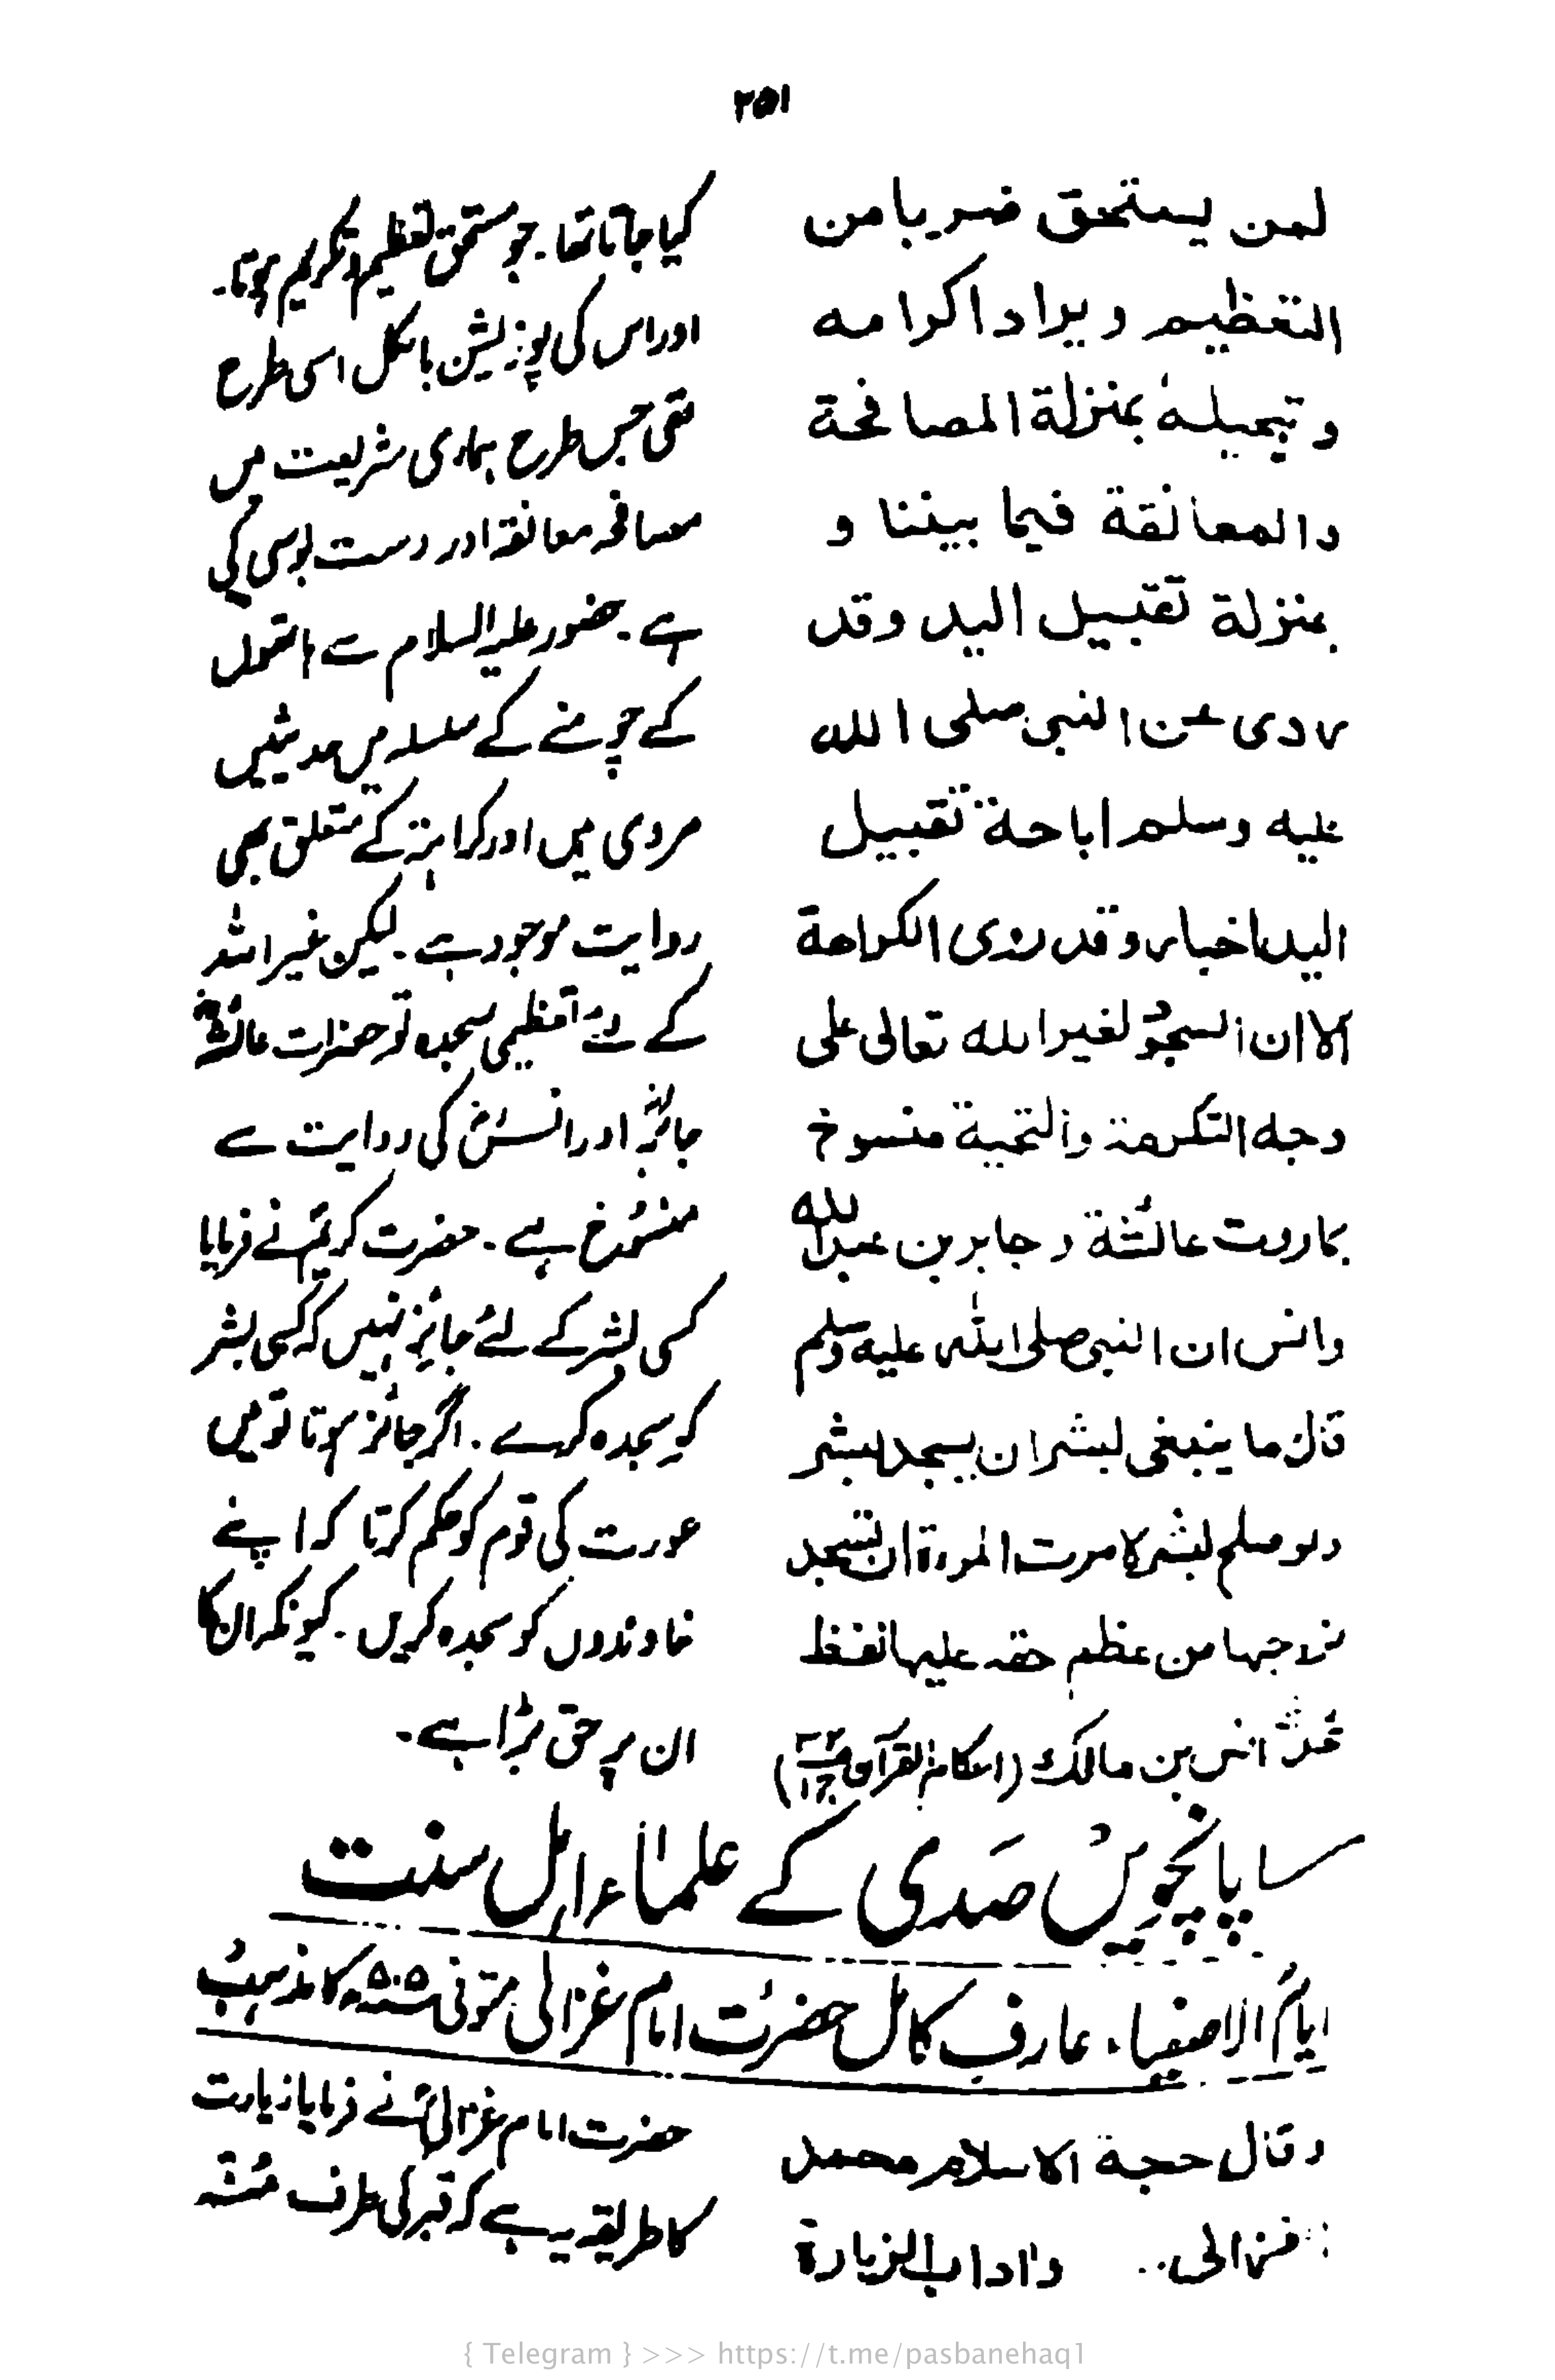 ۲۵۱
لمن يستحق ضربا من
التعظيم ويراد اكرامه
وتبجيله بمنزلة المصافحة
والمعانقة فيما بيننا و
بمنزلة تقبيل اليد وقد
روى عن النبي صلى الله
عليه وسلم اباحة تقبيل
اليد اخبار وقد روى الكراهة
الا ان السجود لغير الله تعالى على
وجه التكرمة والتحية منسوخ
بماروت عائشة وجابر بن عبدالله
وانس ان النبي صلى الله عليه وسلم
قال ما ينبغي لبشر ان يسجد لبشر
ولو صلح لبشر لامرت المرءة ان تسجد
لزوجها من عظم حقه عليها لفظ
انس بن مالك (احكام القرآن
کیا جاتا تھا۔ جو مستحق تعظیم و تکریم ہوتا۔
اور اس کی پوزیشن بالکل اسی طرح
تھی جس طرح ہماری شریعت میں
مصافحہ معانقہ اور دست بوسی کی
ہے۔ حضور علیہ السلام سے ہاتھوں
کے چومنے کے سلسلہ میں حدیثیں
مروی ہیں اور کراہتہ کے متعلق بھی
روایت موجود ہے۔ لیکن غیر اللہ
کے لئے تعظیمی سجدہ تو حضرات عائشہؓ
جابرؓ اور انسؓ کی روایت سے
منسوخ ہے۔ حضرت کریمؐ نے فرمایا
کسی بشر کے لئے جائز نہیں کہ کسی بشر
کو سجدہ کرے۔ اگر جائز ہوتا تو میں
عورت کی قوم کو حکم کرتا کہ اپنے
خاوندوں کو سجدہ کریں۔ کیونکہ ان کا
ان پر حق بڑا ہے۔
پانچویں صدی کے علماء اہل سنت
امام الاصفیاء، عارف کامل حضرت امام غزالی متوفی ۵۰۵ھ کا مذہب
وقال حجة الاسلام محمد
غزالي .. واداب الزيارة
حضرت امام غزالیؒ نے فرمایا زیارت
کا طریقہ یہ ہے کہ قبر کی طرف
{ Telegram } >>> https://t.me/pasbanehaq1